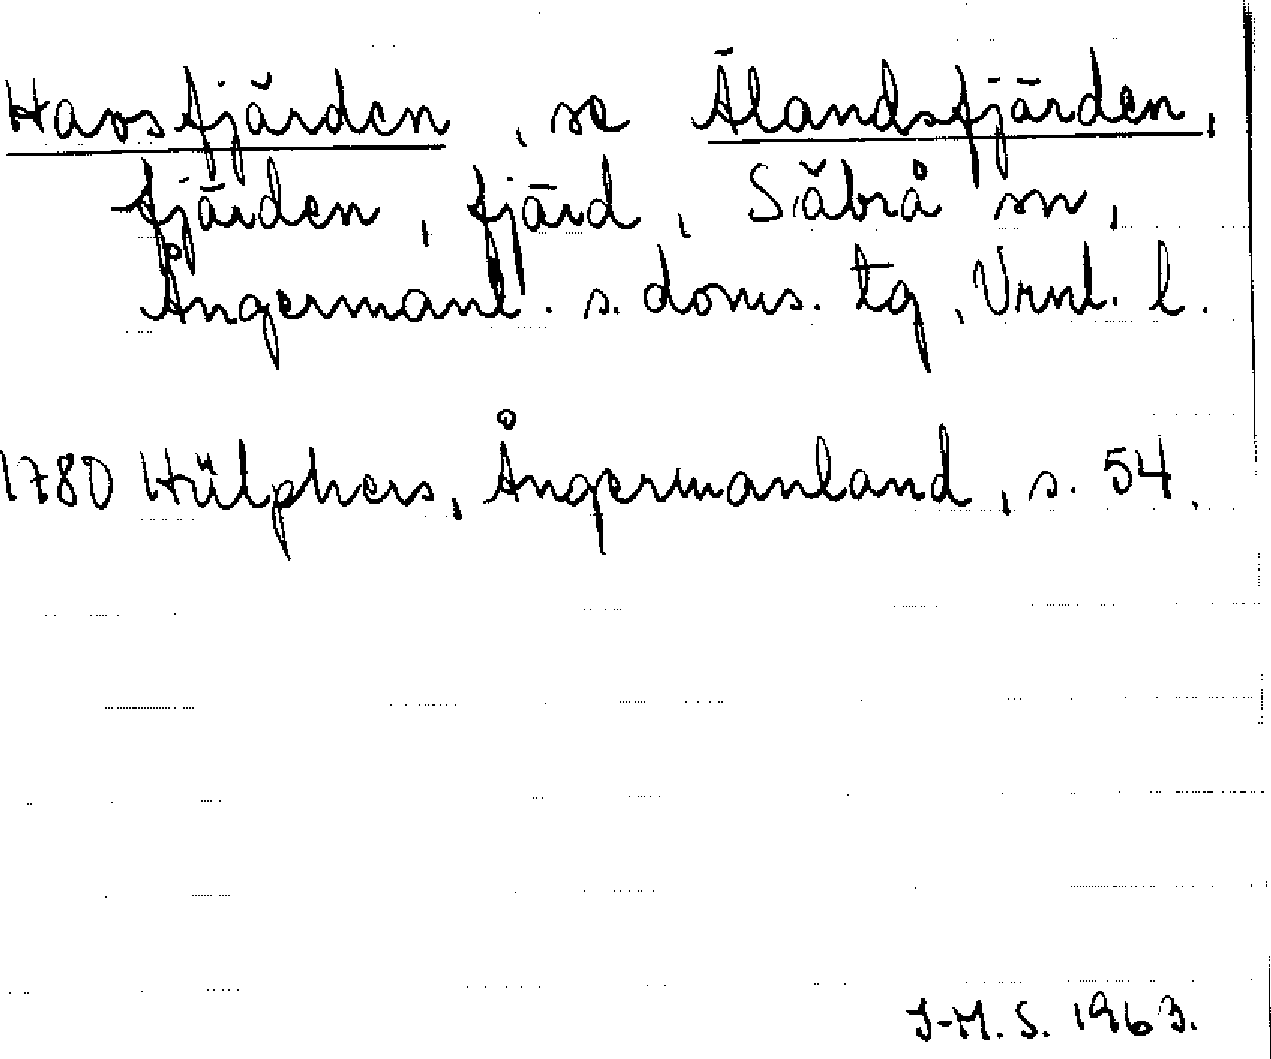 Havsfjärden, se Älandsfjärden,
fjärden, fjärd, Säbrå sn,
Ångermanl. s. doms. tg, Vrnl. l.
1780 Hülphers, Ångermanland, s. 54.
I-M. S. 1963.